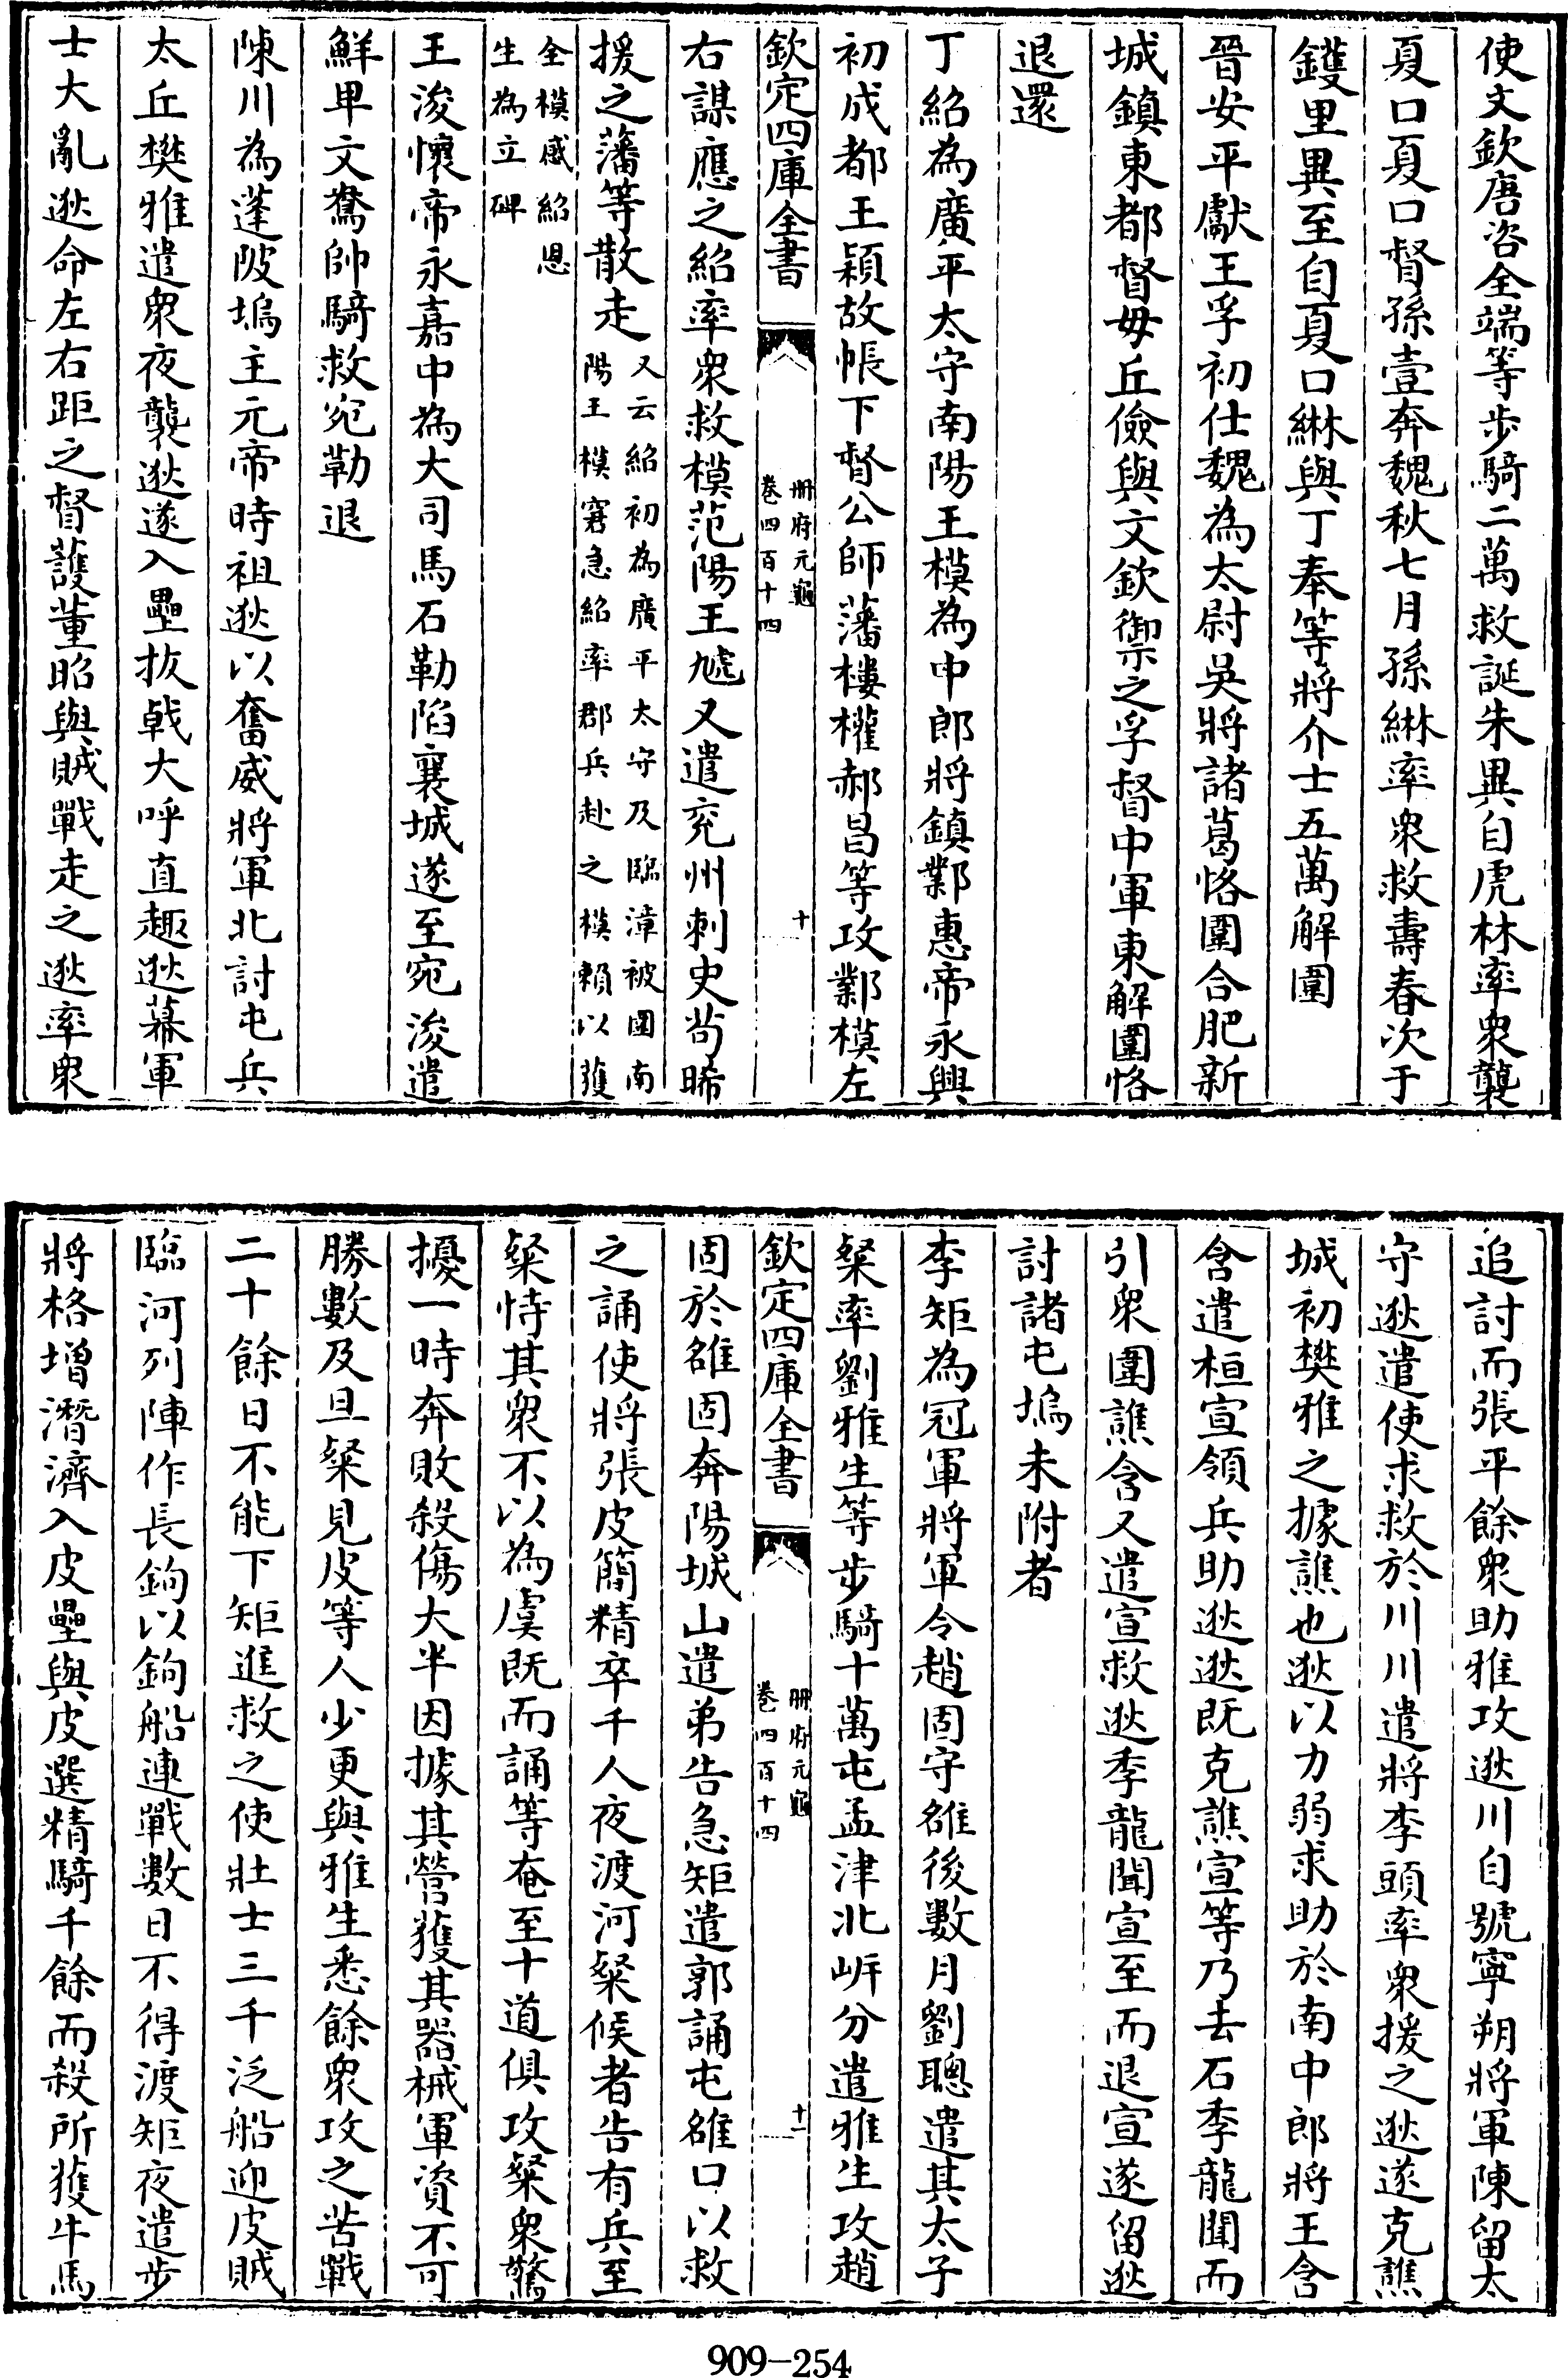 使文欽唐咨全端等步騎二萬救誕朱異自虎林率衆襲
夏口夏口督孫壹奔魏秋七月孫綝率衆救壽春次于
鑊里異至自夏口綝與丁奉等將介士五萬解圍
晉安平獻王孚初仕魏為太尉吳將諸葛恪圍合肥新
城鎮東都督毋丘儉與文欽禦之孚督中軍東解圍恪
退還
丁紹為廣平太守南陽王模為中郎將鎮鄴惠帝永興
初成都王穎故帳下督公師藩樓權郝昌等攻鄴模左
欽定四庫全書
冊府元龜
卷四百十四
十
右謀應之紹率衆救模范陽王虓又遣兗州刺史茍晞
援之藩等散走又云紹初為廣平太守及臨漳被圍南
陽王模窘急紹率郡兵赴之模賴以獲
全模感紹恩
生為立碑
王浚懷帝永嘉中為大司馬石勒陷襄城遂至宛浚遣
鮮卑文鴦帥騎救宛勒退
陳川為蓬陂塢主元帝時祖逖以奮威將軍北討屯兵
太丘樊雅遣衆夜襲逖遂入壘拔戟大呼直趣逖幕軍
士大亂逖命左右距之督護董昭與賊戰走之逖率衆
追討而張平餘衆助雅攻逖川自號寧朔將軍陳留太
守逖遣使求救於川川遣將李頭率衆援之逖遂克譙
城初樊雅之據譙也逖以力弱求助於南中郎將王含
含遣桓宣領兵助逖逖既克譙宣等乃去石季龍聞而
引衆圍譙含又遣宣救逖季龍聞宣至而退宣遂留逖
討諸屯塢未附者
李矩為冠軍將軍令趙固守雒後數月劉聰遣其太子
粲率劉雅生等步騎十萬屯孟津北岍分遣雅生攻趙
欽定四庫全書
冊府元龜
卷四百十四
十一
固於雒固奔陽城山遣弟告急矩遣郭誦屯雒口以救
之誦使將張皮簡精卒千人夜渡河粲候者告有兵至
粲恃其衆不以為虞既而誦等奄至十道俱攻粲衆驚
擾一時奔敗殺傷大半因據其營獲其器械軍資不可
勝數及旦粲見皮等人少更與雅生悉餘衆攻之苦戰
二十餘日不能下矩進救之使壯士三千泛船迎皮賊
臨河列陣作長鉤以鉤船連戰數日不得渡矩夜遣步
將格增潛濟入皮壘與皮選精騎千餘而殺所獲牛馬
909-254